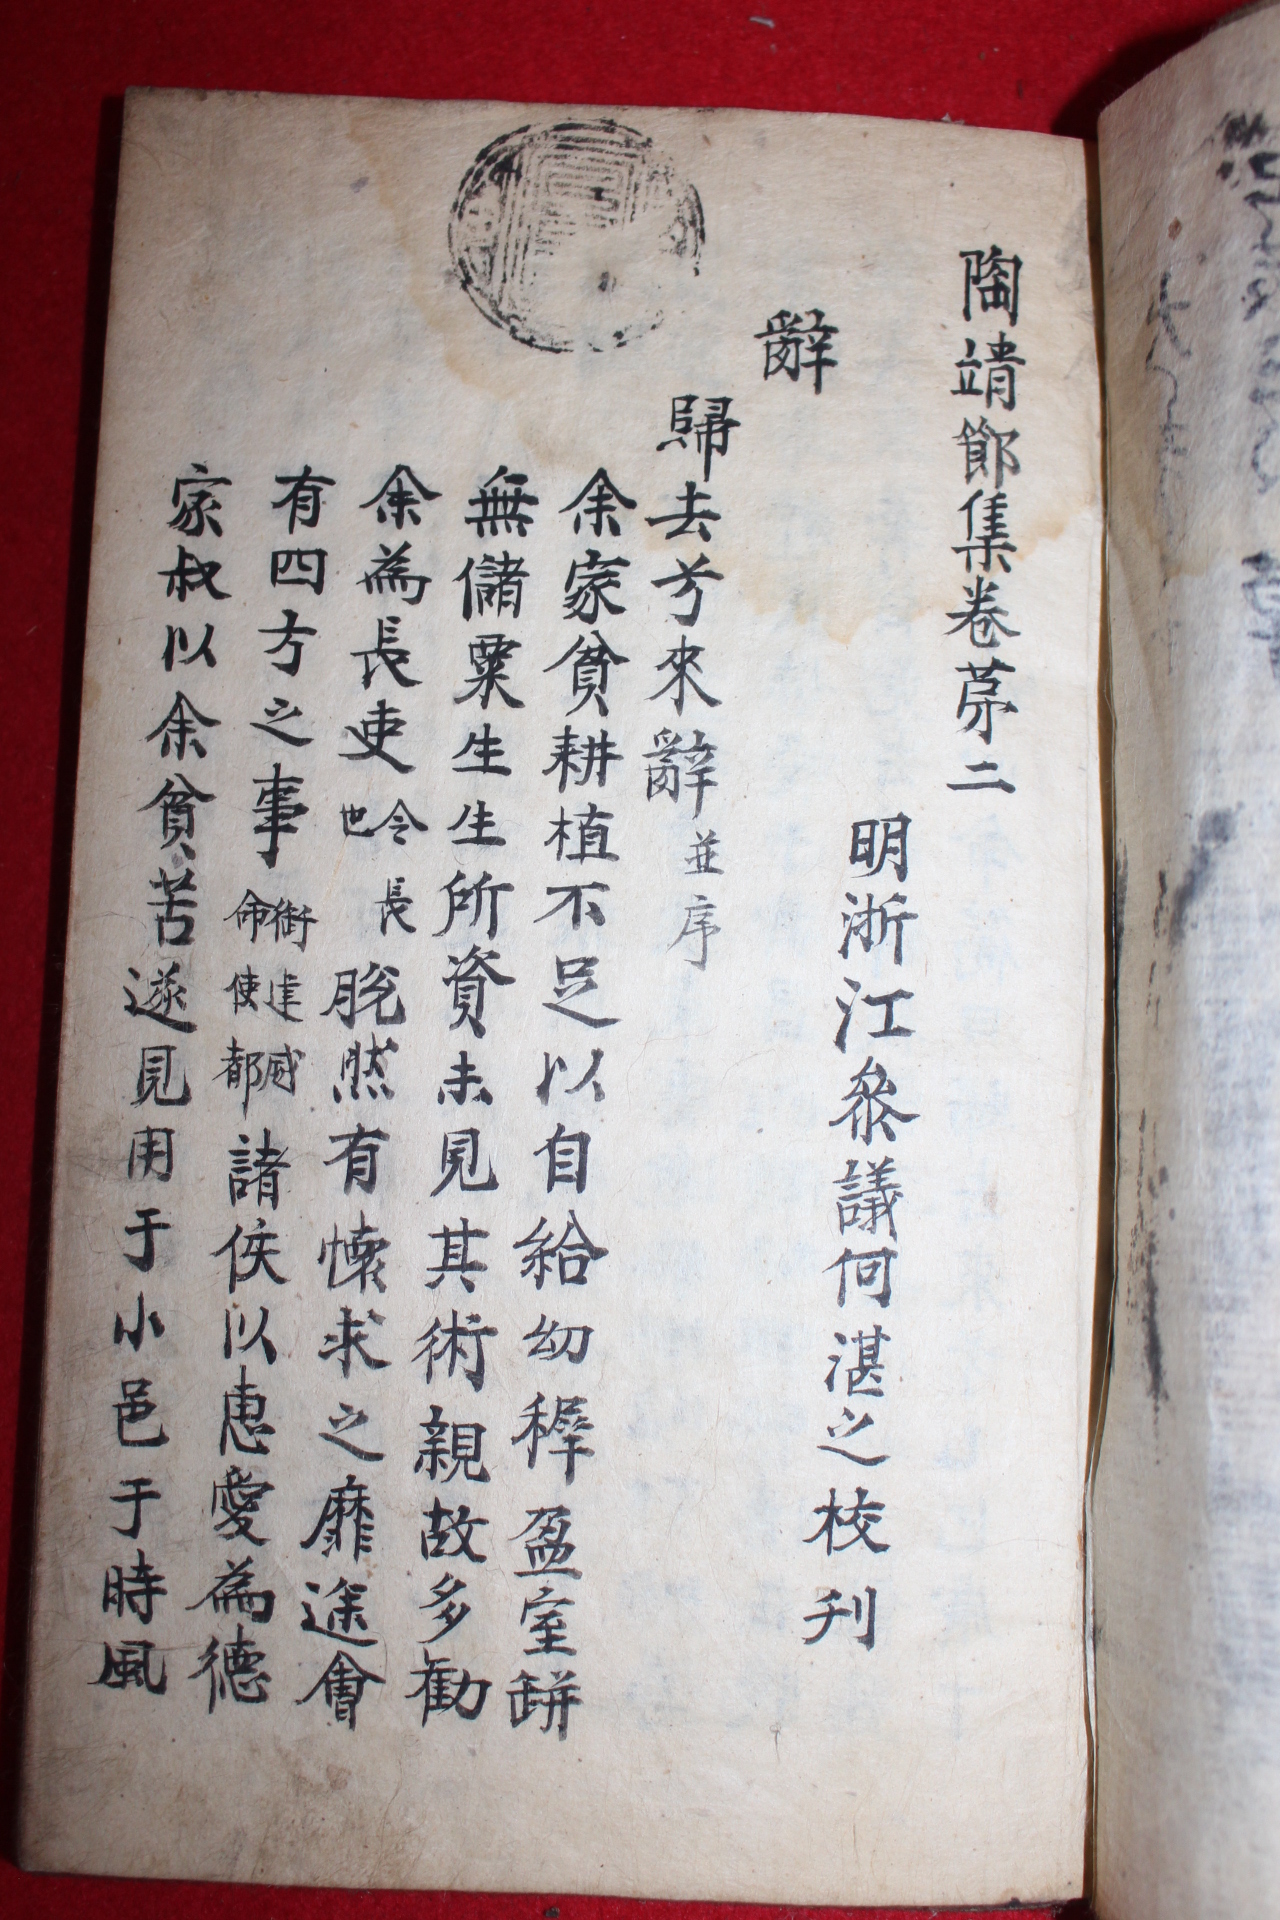 陶靖節集卷苐二
明浙江叅議何湛之校刊
辭
歸去兮來辭並序
余家貧耕植不足以自給幼穉盈室缾
無儲粟生生所資未見其術親故多勸
余為長吏令長也脫然有懷求之靡途會
有四方之事銜建威命使都諸侯以惠愛為德
家叔以余貧苦遂見用于小邑于時風